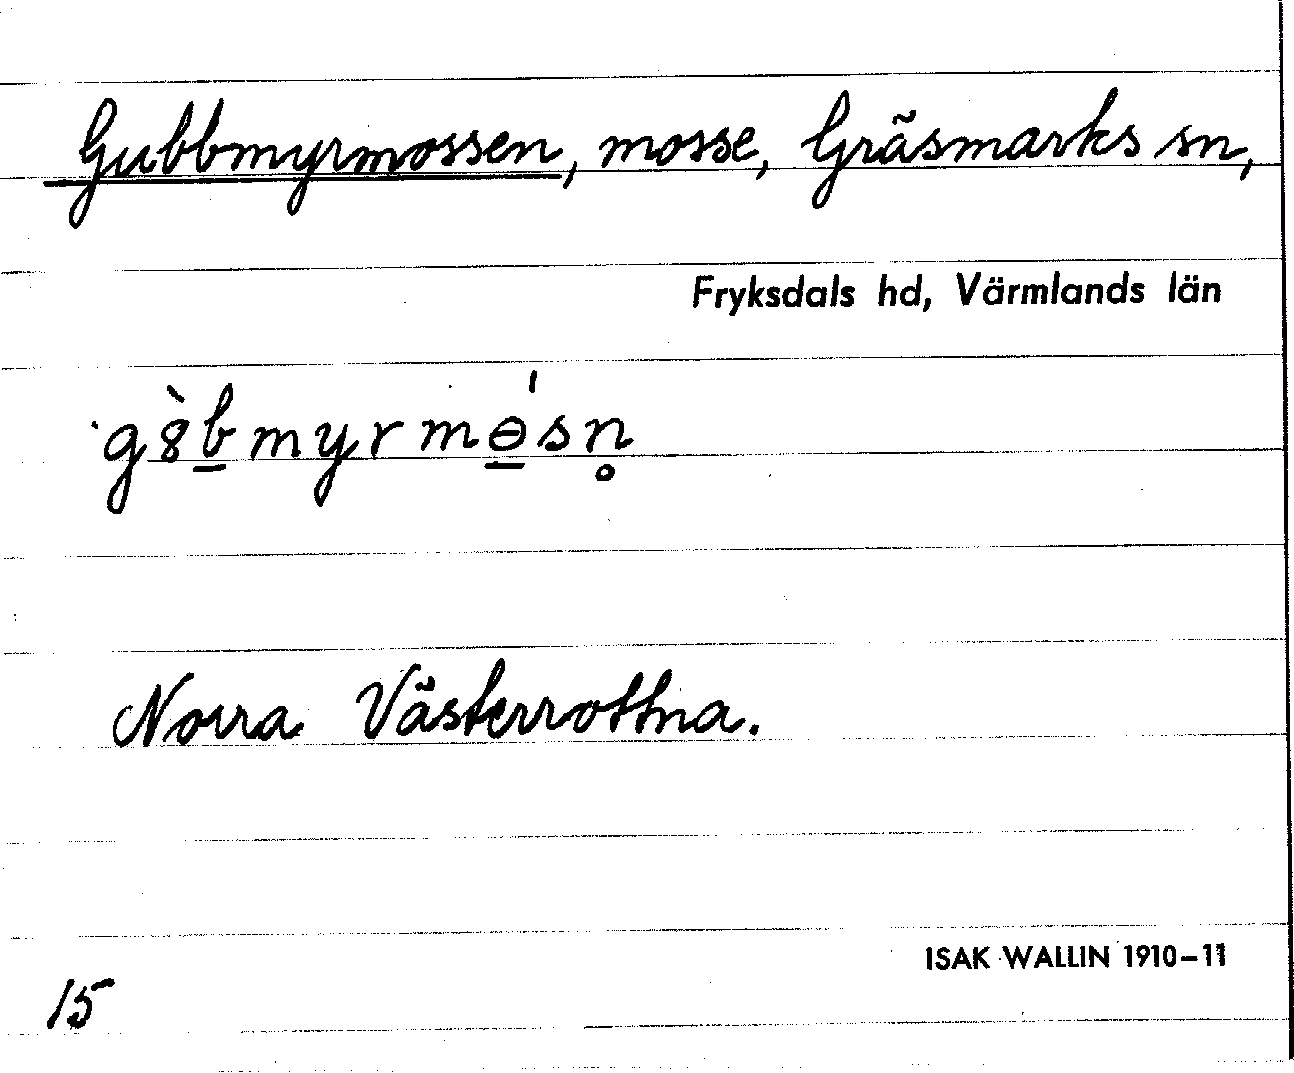 Gubbmyrmossen, mosse, Gräsmarks sn,
Fryksdals hd, Värmlands län
g8̀b̲myrmɵ̲́sn̥
Norra Västerrottna.
ISAK WALLIN 1910-11
15